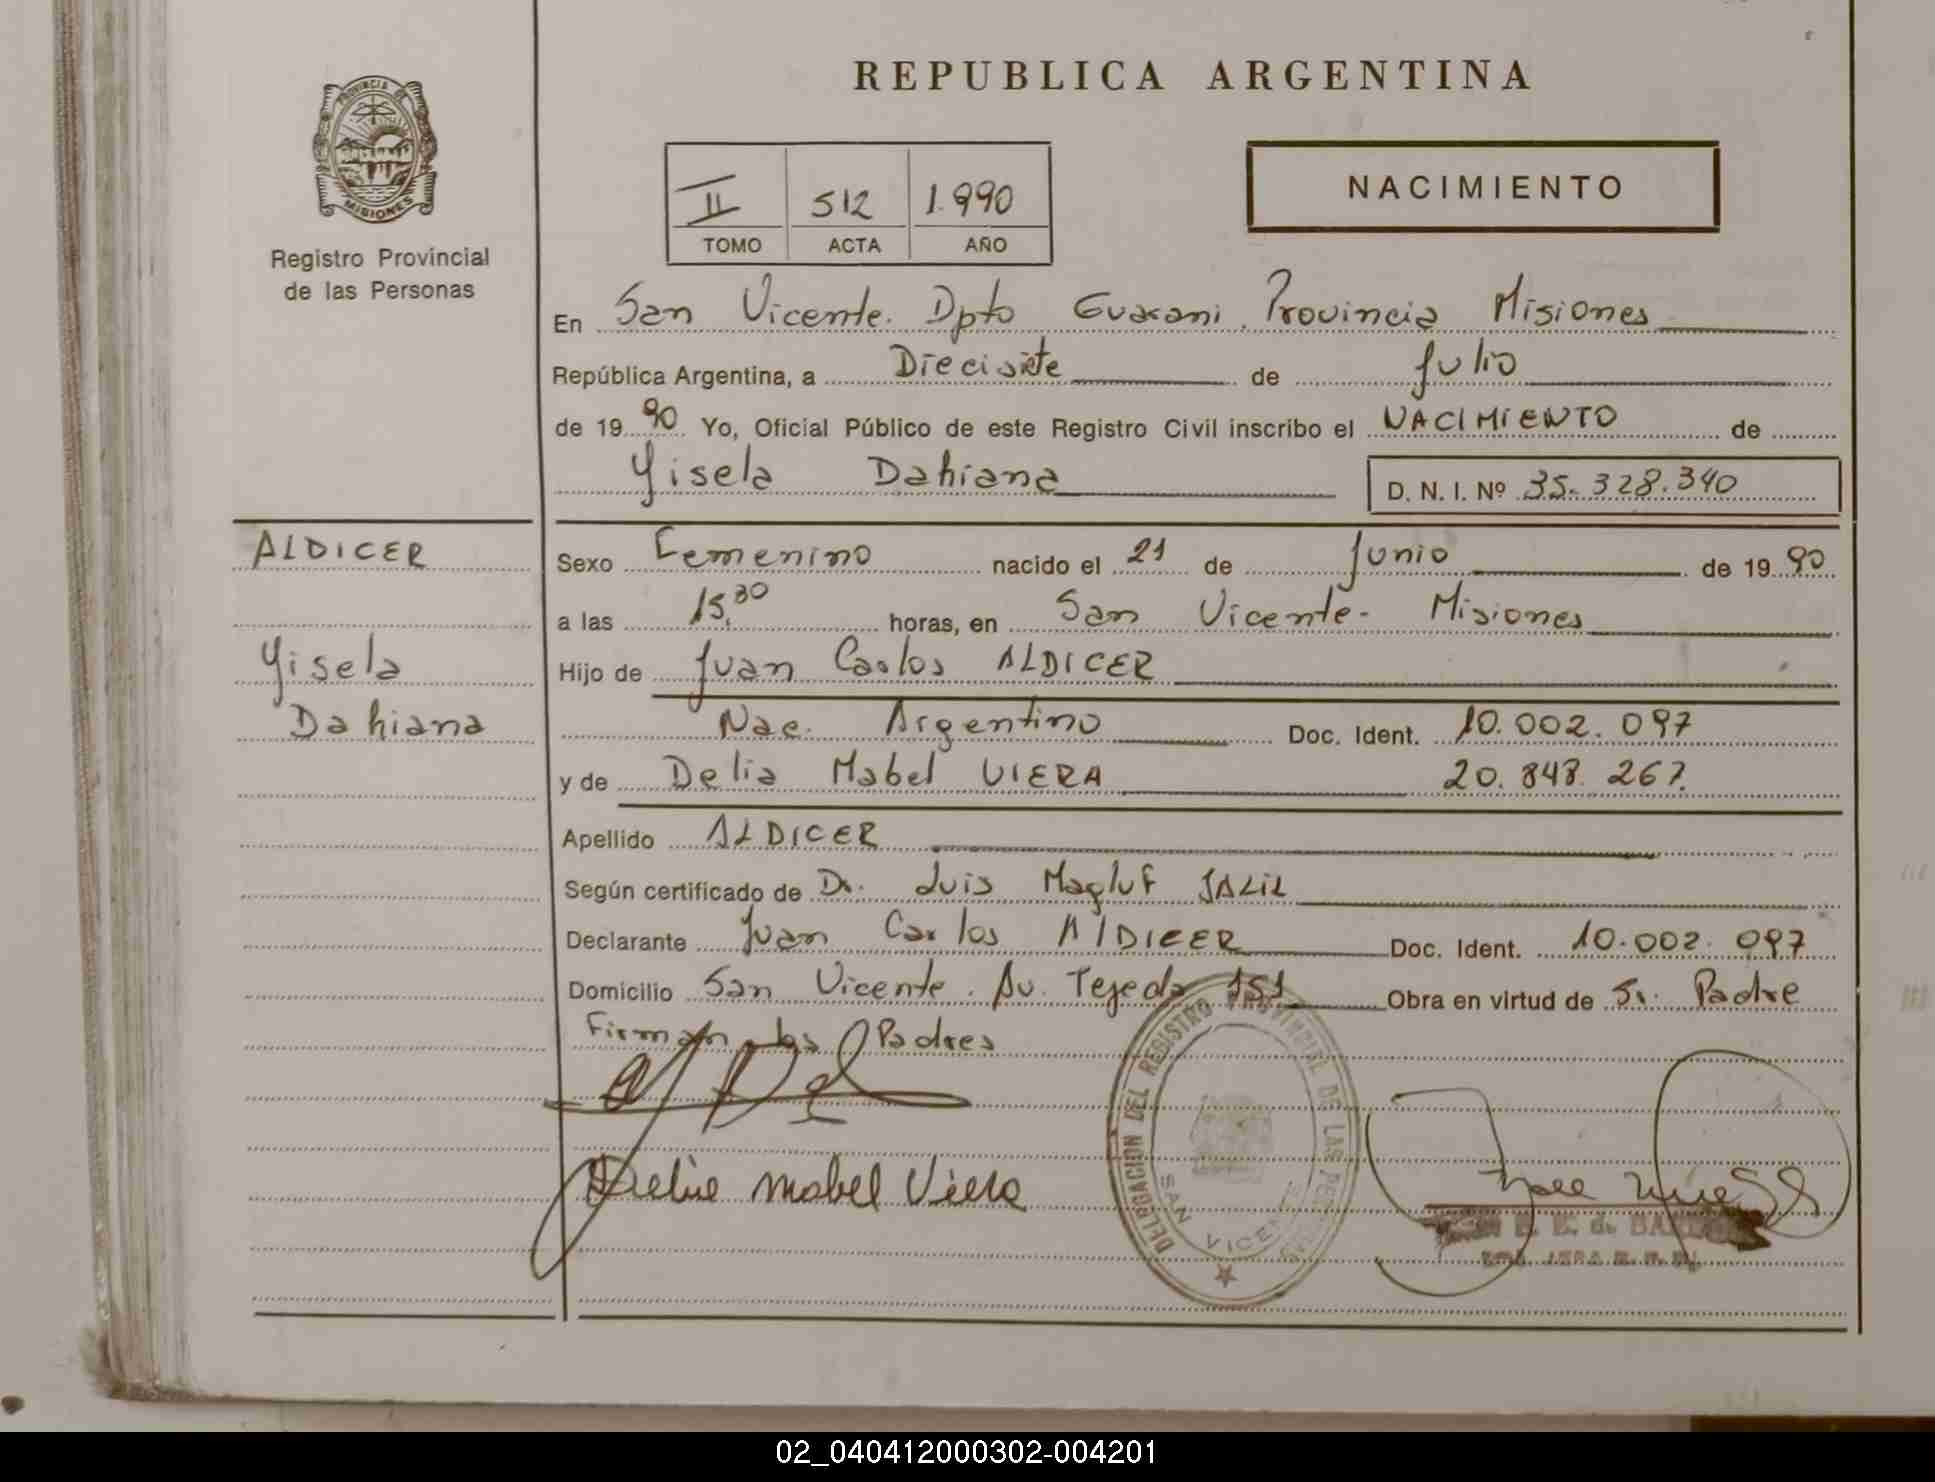 REPUBLICA ARGENTINA
PROVINCIA DE MISIONES
Registro Provincial
de las Personas
II 512 1.990
TOMO ACTA AÑO
NACIMIENTO
En San Vicente. Dpto Guarani. Provincia Misiones
República Argentina, a Diecisiete de Julio
de 19 90 Yo, Oficial Público de este Registro Civil inscribo el NACIMIENTO de
Yisela Dahiana D. N. I. Nº 35.328.340
ALDICER
Yisela
Dahiana
Sexo Femenino nacido el 21 de Junio de 19 90
a las 15,30 horas, en San Vicente - Misiones
Hijo de Juan Carlos ALDICER
Nac. Argentino Doc. Ident. 10.002.097
y de Delia Mabel VIERA 20.848.267.
Apellido ALDICER
Según certificado de Dr. Luis Magluf JALIL
Declarante Juan Carlos AlDICER Doc. Ident. 10.002.097
Domicilio San Vicente. Av. Tejeda 151 Obra en virtud de Sr. Padre
Firman los Padres
Delia Mabel Viera
DELEGACION DEL REGISTRO PROVINCIAL DE LAS PERSONAS
SAN VICENTE
02_040412000302-004201